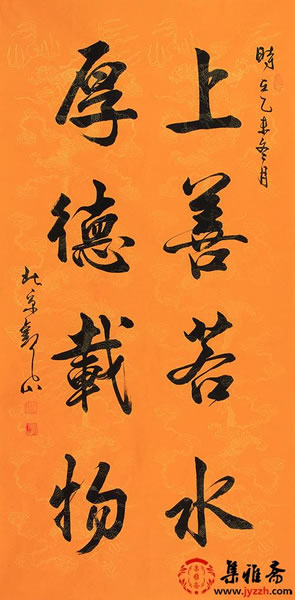 時在乙未冬月
上善若水
厚德載物
北京
集雅斋
www.jyzzh.com